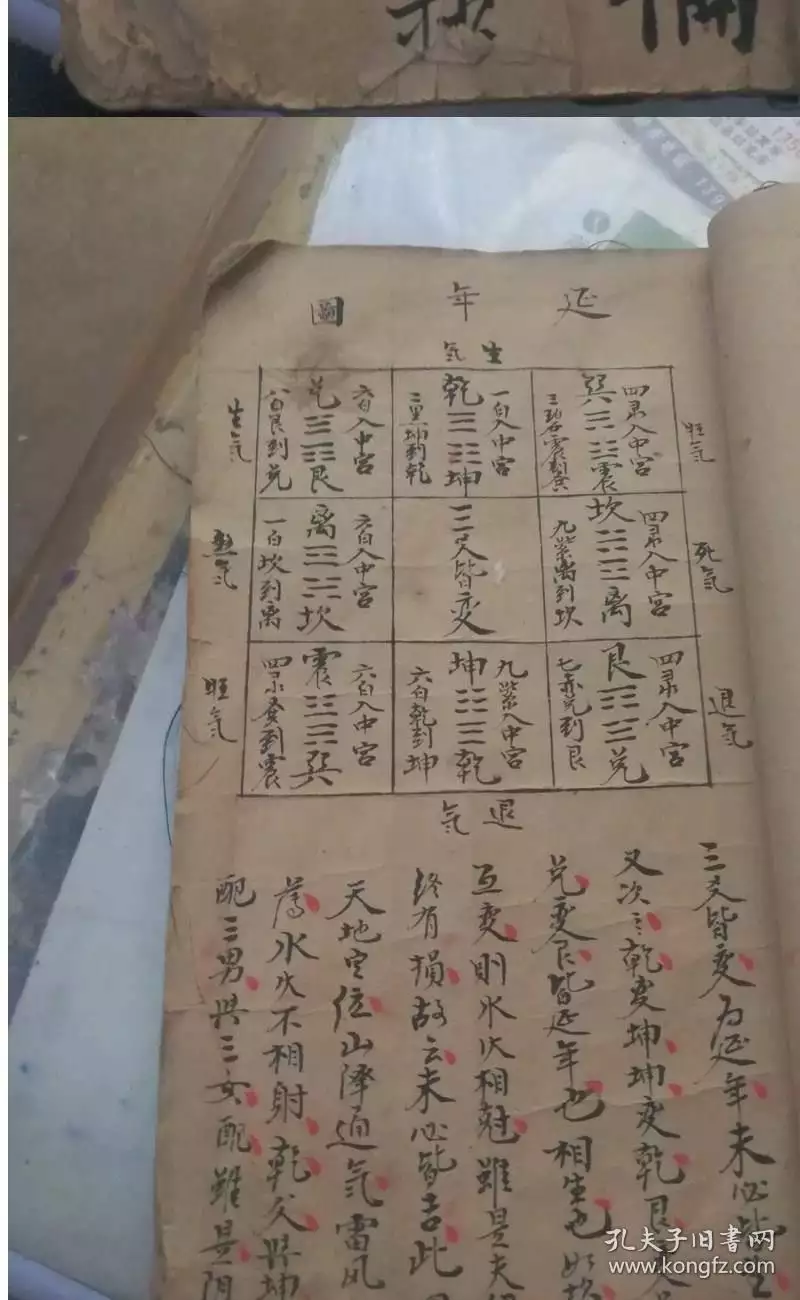 延年圖
生气
四录入中宮
巽 震
三碧震到巽
旺气
一白入中宮
乾 坤
二黑坤到乾
六白入中宮
兑 艮
八白艮到兑
生气
四录入中宮
坎 离
九紫离到坎
死气
三爻皆变
六白入中宮
离 坎
一白坎到离
四录入中宮
艮 兑
七赤兑到艮
退气
九紫入中宮
坤 乾
六白乾到坤
六白入中宮
震 巽
四录巽到震
旺气
退气
三爻皆变为延年未必皆
又次之乾变坤坤变乾艮
兑变艮皆延年也相生也如坎
互变則水火相尅雖是夫
終有損故云未必皆吉此
天地定位山澤通气雷风
薄水火不相射乾父與坤
配三男與三女配雖是阴
孔夫子旧書网
www.kongfz.com